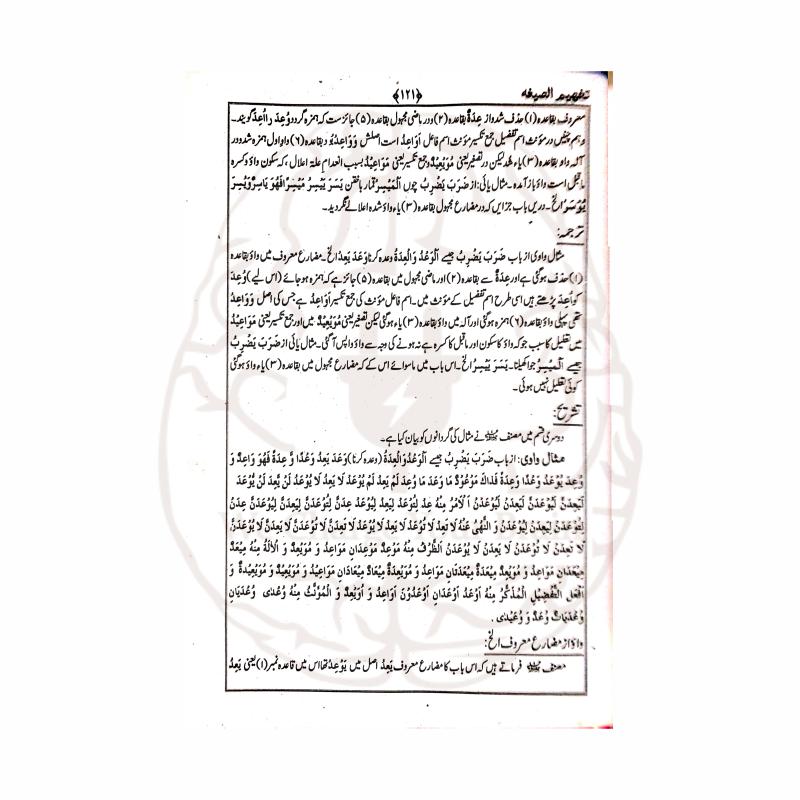 تفہیم الصیغہ ﴿۱۲۱﴾
معروف بقاعدہ (۱) حذف شدہ و از عِدَةٌ بقاعدہ (۲) و در ماضی مجہول بقاعدہ (۵) جائز ست کہ ہمزہ گردد وُعِدَ را اُعِدَ گویند۔
و ہم چنیں در مؤنث اسم تفضیل جمع تکسیر مؤنث اسم فاعل اَوَاعِدُ است اصلش وَوَاعِدُ بود بقاعدہ (۶) واو اول ہمزہ شد و در
آلہ واؤ بقاعدہ (۳) یاء شد لیکن در تصغیر یعنی مُوَيْعِيْدٌ و جمع تکسیر یعنی مَوَاعِيْدُ بسبب انعدام علۃ اعلال، کہ سکون واؤ و کسرہ
ماقبل است واؤ باز آمدہ۔ مثال یائی: از ضَرَبَ يَضْرِبُ چوں اَلْمَيْسِرُ قمار باختن يَسَرَ يَيْسِرُ مَيْسِرًا فَهُوَ يَاسِرٌ وَيُسِرَ
يُوْسَرُ الخ۔ دریں باب جز ایں کہ در مضارع مجہول بقاعدہ (۳) یاء واؤ شدہ اعلالے نگردید۔
ترجمہ:
مثال واوی از باب ضَرَبَ يَضْرِبُ جیسے اَلْوَعْدُ وَالْعِدَةُ وعدہ کرنا وَعَدَ يَعِدُ الخ۔ مضارع معروف میں واؤ بقاعدہ
(۱) حذف ہوگئی ہے اور عِدَةٌ سے بقاعدہ (۲) اور ماضی مجہول میں بقاعدہ (۵) جائز ہے کہ ہمزہ ہو جائے (اس لیے) وُعِدَ
کو اُعِدَ پڑھتے ہیں اسی طرح اسم تفضیل کے مؤنث میں۔ اسم فاعل مؤنث کی جمع تکسیر اَوَاعِدُ ہے جس کی اصل وَوَاعِدُ
تھی پہلی واؤ بقاعدہ (۶) ہمزہ ہوگئی اور آلہ میں واؤ بقاعدہ (۳) یاء ہوگئی لیکن تصغیر یعنی مُوَيْعِيْدٌ میں اور جمع تکسیر یعنی مَوَاعِيْدُ
میں تعلیل کا سبب جو کہ واؤ کا سکون اور ماقبل کا کسرہ ہے نہ ہونے کی وجہ سے واؤ واپس آگئی۔ مثال یائی از ضَرَبَ يَضْرِبُ
جیسے اَلْمَيْسِرُ جوا کھیلنا۔ يَسَرَ يَيْسِرُ الخ۔ اس باب میں ماسوائے اس کے کہ مضارع مجہول میں بقاعدہ (۳) یاء واؤ ہوگئی
کوئی تعلیل نہیں ہوئی۔
تشریح:
دوسری قسم میں مصنف نے مثال کی گردانوں کو بیان کیا ہے۔
مثال واوی: از باب ضَرَبَ يَضْرِبُ جیسے اَلْوَعْدُ وَالْعِدَةُ (وعدہ کرنا) وَعَدَ يَعِدُ وَعْدًا وَّ عِدَةً فَهُوَ وَاعِدٌ وَ
وُعِدَ يُوْعَدُ وَعْدًا وَّعِدَةً فَذَاكَ مَوْعُوْدٌ مَا وَعَدَ مَا وُعِدَ لَمْ يَعِدْ لَمْ يُوْعَدْ لَا يَعِدُ لَا يُوْعَدُ لَنْ يَّعِدَ لَنْ يُّوْعَدَ
لَيَعِدَنَّ لَيُوْعَدَنَّ لَيَعِدَنْ لَيُوْعَدَنْ اَلْاَمْرُ مِنْهُ عِدْ لِتُوْعَدْ لِيَعِدْ لِيُوْعَدْ عِدَنَّ لِتُوْعَدَنَّ لِيَعِدَنَّ لِيُوْعَدَنَّ عِدَنْ
لِتُوْعَدَنْ لِيَعِدَنْ لِيُوْعَدَنْ وَ النَّهْيُ عَنْهُ لَا تَعِدْ لَا تُوْعَدْ لَا يَعِدْ لَا يُوْعَدْ لَا تَعِدَنَّ لَا تُوْعَدَنَّ لَا يَعِدَنَّ لَا يُوْعَدَنَّ
لَا تَعِدَنْ لَا تُوْعَدَنْ لَا يَعِدَنْ لَا يُوْعَدَنْ اَلظَّرْفُ مِنْهُ مَوْعِدٌ مَوْعِدَانِ مَوَاعِدُ وَ مُوَيْعِدٌ وَ الْاٰلَةُ مِنْهُ مِيْعَدٌ
مِيْعَدَانِ مَوَاعِدُ وَ مُوَيْعِدٌ مِيْعَدَةٌ مِيْعَدَتَانِ مَوَاعِدُ وَ مُوَيْعِدَةٌ مِيْعَادٌ مِيْعَادَانِ مَوَاعِيْدُ وَ مُوَيْعِيْدٌ وَ مُوَيْعِيْدَةٌ وَ
اَفْعَلُ التَّفْضِيْلِ الْمُذَكَّرُ مِنْهُ اَوْعَدُ اَوْعَدَانِ اَوْعَدُوْنَ اَوَاعِدُ وَ اُوَيْعِدٌ وَ الْمُؤَنَّثُ مِنْهُ وُعْدٰى وُعْدَيَانِ
وُعْدَيَاتٌ وُعَدٌ وَ وُعَيْدٰى.
واؤ از مضارع معروف الخ:
مصنف فرماتے ہیں کہ اس باب کا مضارع معروف يَعِدُ اصل میں يَوْعِدُ تھا اس میں قاعدہ نمبر (۱) یعنی يَعِدُ